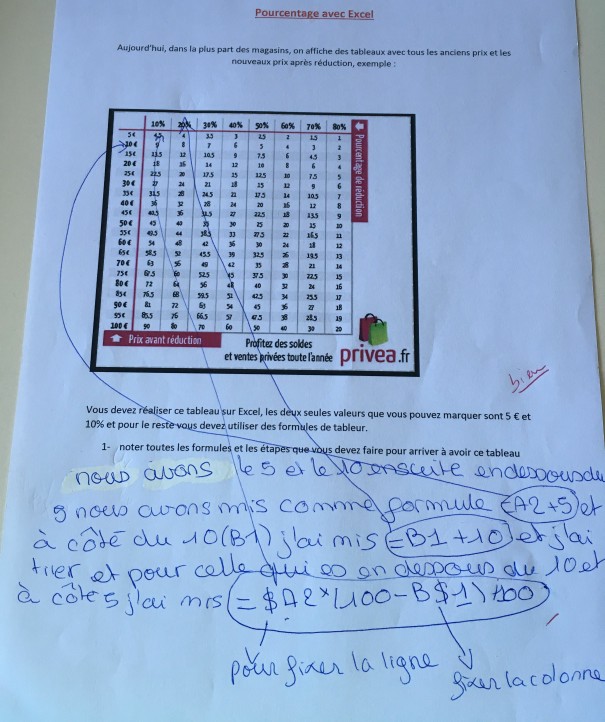 Pourcentage avec Excel
Aujourd'hui, dans la plus part des magasins, on affiche des tableaux avec tous les anciens prix et les
nouveaux prix après réduction, exemple :
10% 20% 30% 40% 50% 60% 70% 80%
5€ 4,5 4 3.5 3 2.5 2 1.5 1
10€ 9 8 7 6 5 4 3 2
15€ 13.5 12 10.5 9 7.5 6 4.5 3
20€ 18 16 14 12 10 8 6 4
25€ 22.5 20 17.5 15 12.5 10 7.5 5
30€ 27 24 21 18 15 12 9 6
35€ 31.5 28 24.5 21 17.5 14 10.5 7
40€ 36 32 28 24 20 16 12 8
45€ 40.5 36 31.5 27 22.5 18 13.5 9
50€ 45 40 35 30 25 20 15 10
55€ 49.5 44 38.5 33 27.5 22 16.5 11
60€ 54 48 42 36 30 24 18 12
65€ 58.5 52 45.5 39 32.5 26 19.5 13
70€ 63 56 49 42 35 28 21 14
75€ 67.5 60 52.5 45 37.5 30 22.5 15
80€ 72 64 56 48 40 32 24 16
85€ 76.5 68 59.5 51 42.5 34 25.5 17
90€ 81 72 63 54 45 36 27 18
95€ 85.5 76 66.5 57 47.5 38 28.5 19
100€ 90 80 70 60 50 40 30 20
Pourcentage de réduction
Prix avant réduction
Profitez des soldes
et ventes privées toute l'année
privea.fr
bien
Vous devez réaliser ce tableau sur Excel, les deux seules valeurs que vous pouvez marquer sont 5 € et
10% et pour le reste vous devez utiliser des formules de tableur.
1- noter toutes les formules et les étapes que vous devez faire pour arriver à avoir ce tableau
nous avons le 5 et le 10 enscuite endessous du
5 nous avons mis comme formule (=A2+5) et
à côté du 10 (B1) j'ai mis =B1+10 et j'ai
tirer et pour celle qui es en dessous du 10 et
à côté 5 j'ai mis (=$A2*(100-B$1)/100)
pour fixer la ligne
fixer la colonne